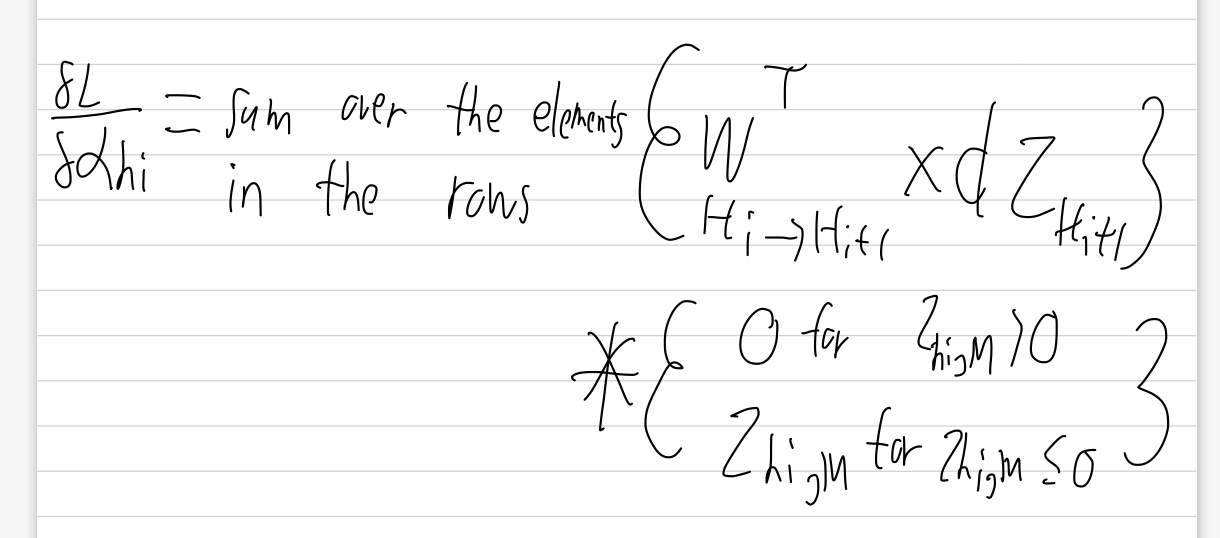 δL/δαhi = sum over the elements in the rows {W^T_{Hi→Hi+1} x dZ_{Hi+1}}
* {0 for Z_{hi,m} > 0
Z_{hi,m} for Z_{hi,m} ≤ 0}